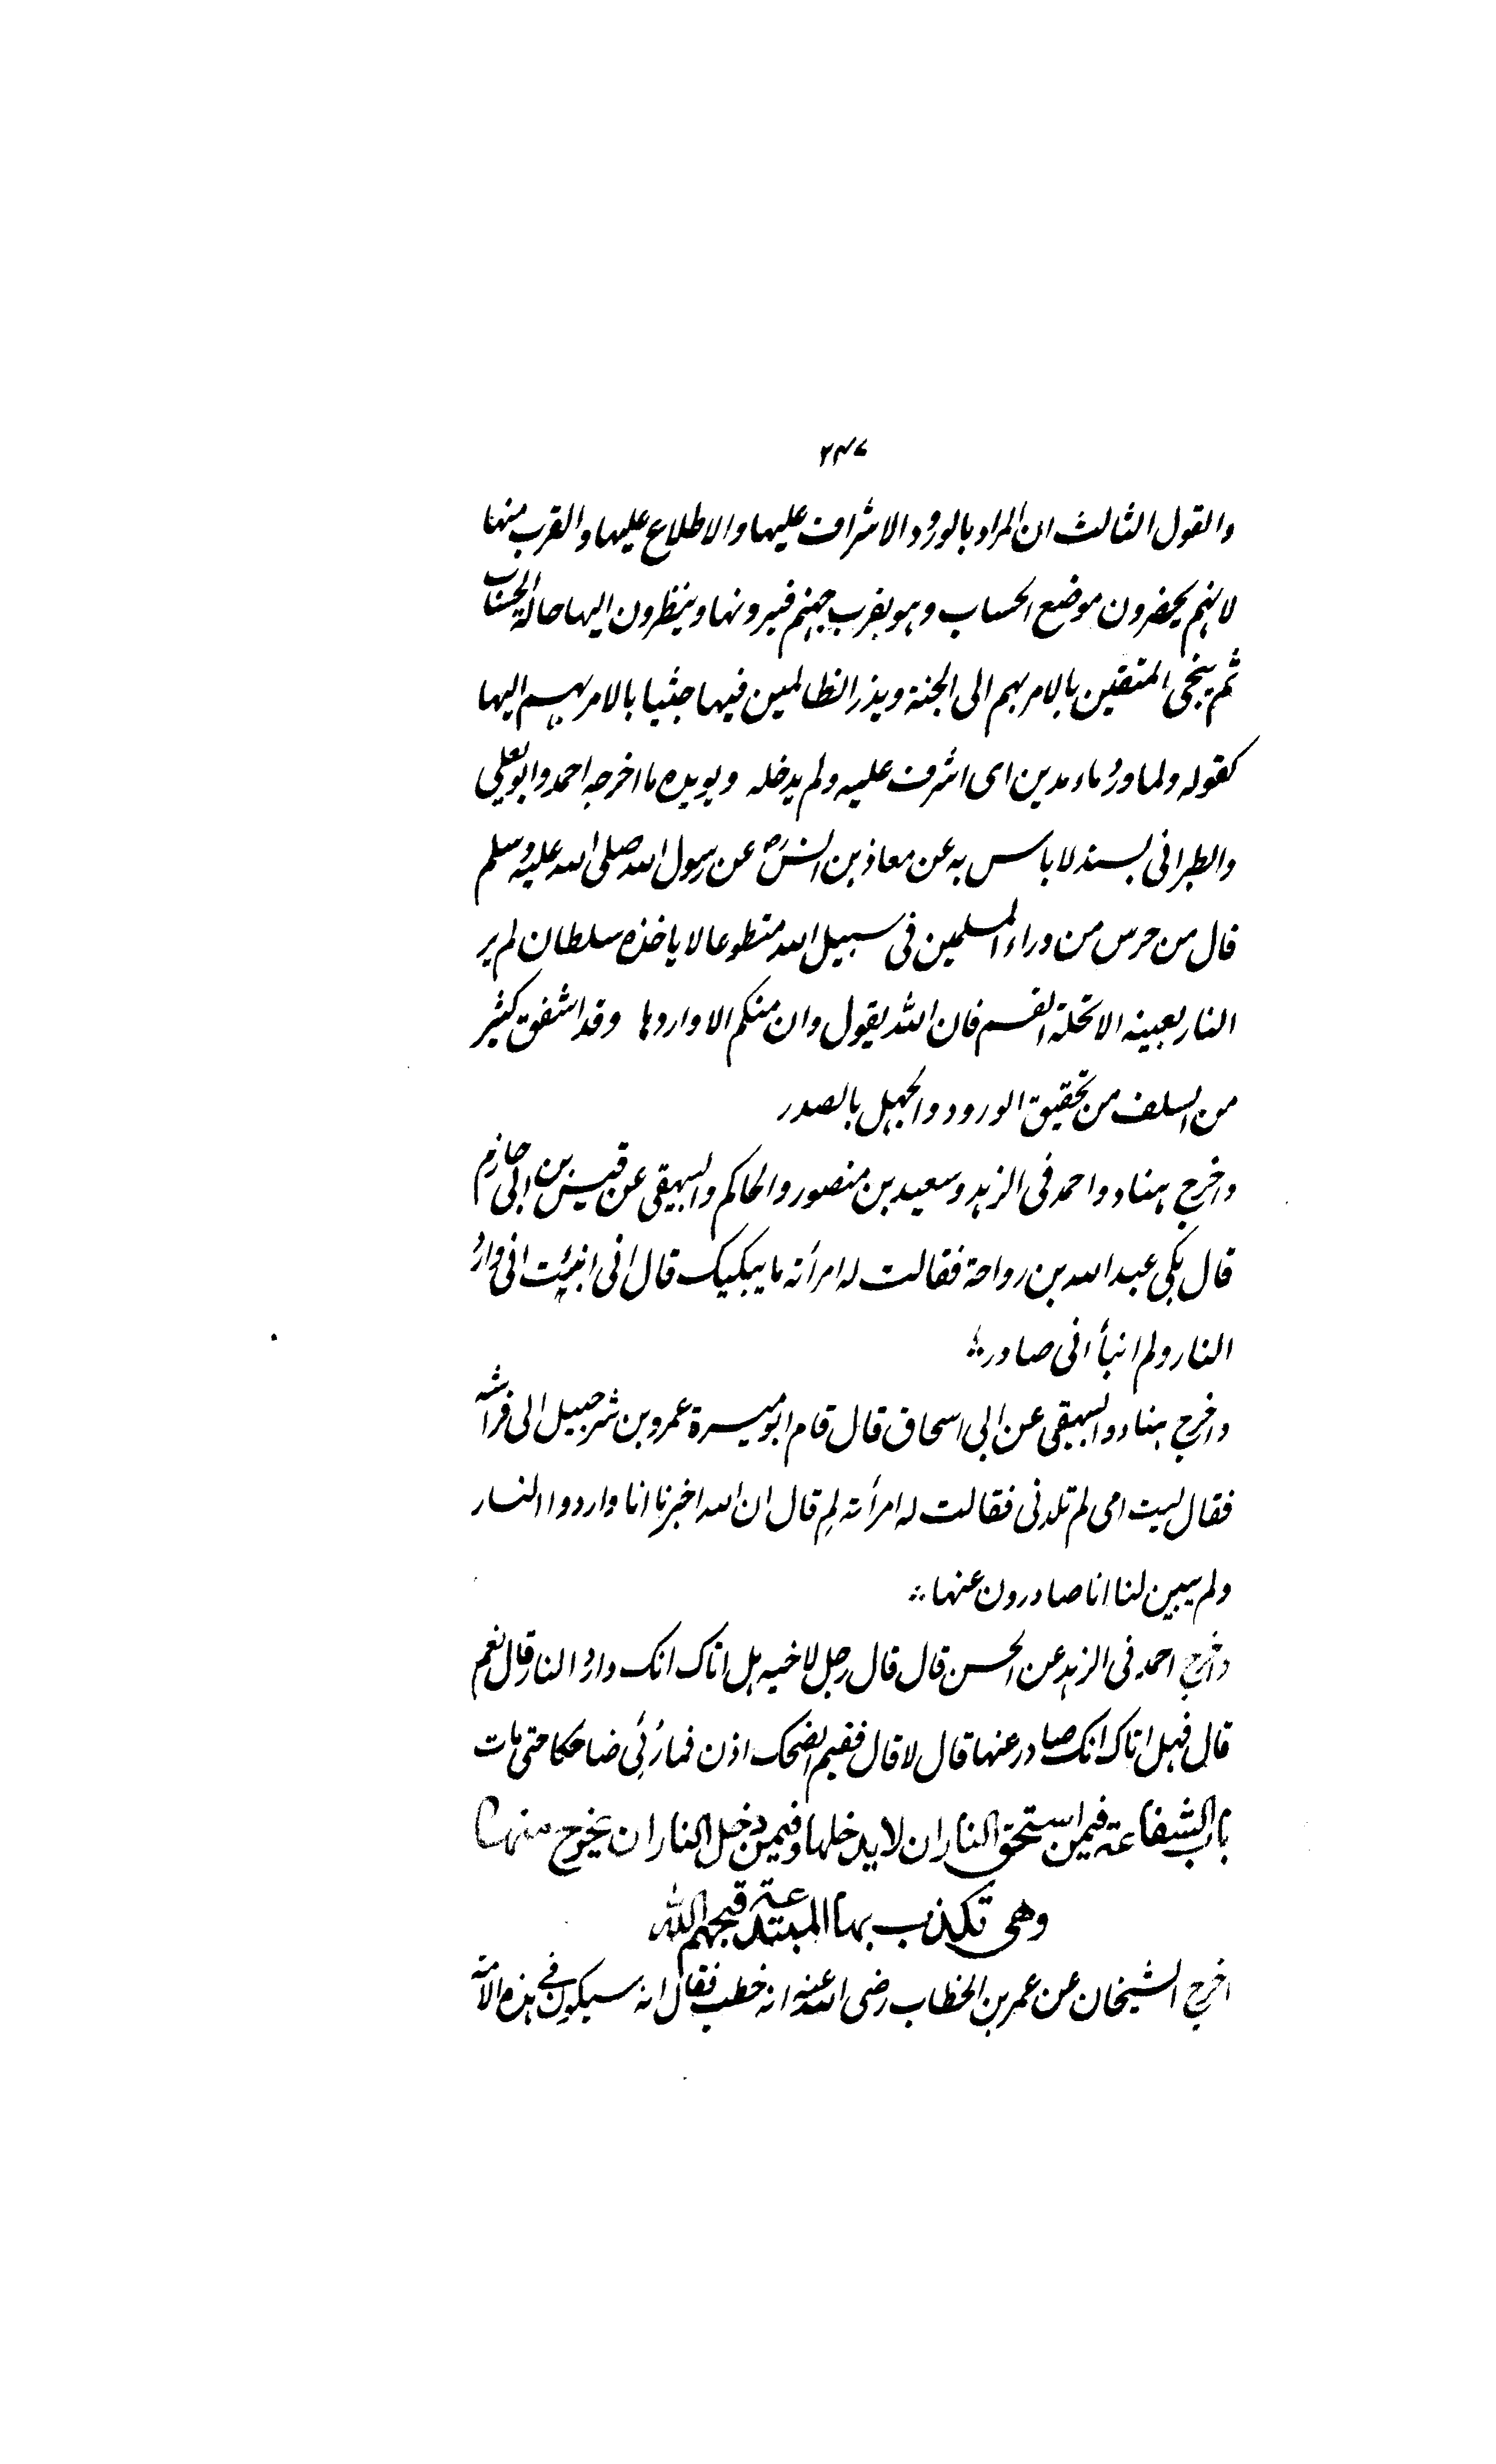 ۲۴۷
والقول الثالث ان المراد بالورود الاشراف عليها والاطلاع عليها والقرب منها
لانهم يحضرون موضع الحساب وهو بقرب جهنم فيرونها وينظرون اليها حالة الحساب
ثم ينجى المتقين بالامر بهم الى الجنة ويذر الظالمين فيها جثيا بالامر بهم اليها
كقوله ولما ورد ماء مدين اى اشرف عليه ولم يدخله ويويده ما اخرجه احمد وابو يعلى
والطبرانى بسند لا باس به عن معاذ بن انس رض عن رسول الله صلى الله عليه وسلم
قال من حرس من وراء المسلمين فى سبيل الله متطوعا لا ياخذه سلطان لم ير
النار بعينه الا تحلة القسم فان الله يقول وان منكم الا واردها وقد اشفق كثير
من السلف من تحقيق الورود والجهل بالصدر
واخرج هناد واحمد فى الزهد وسعيد بن منصور والحاكم والبيهقى عن قيس بن ابى حازم
قال بكى عبد الله بن رواحة فقالت له امرأته ما يبكيك قال انى انبئت انى وارد
النار ولم انبأ انى صادر
واخرج هناد والبيهقى عن ابى اسحاق قال قام ابو ميسرة عمرو بن شرحبيل الى فراشه
فقال ليت امى لم تلدنى فقالت له امرأته لم قال ان الله اخبرنا انا واردوا النار
ولم يبين لنا انا صادرون عنها
واخرج احمد فى الزهد عن الحسن قال قال رجل لاخيه هل اتاك انك وارد النار قال نعم
قال فهل اتاك انك صادر عنها قال لا قال ففيم الضحك اذن فما رئى ضاحكا حتى مات
باب الشفاعة فيمن استحق النار ان لا يدخلها وفيمن دخل النار ان يخرج منها
وهى تكذب بها المبتدعة قبحهم الله
اخرج الشيخان عن عمر بن الخطاب رضى الله عنه انه خطب فقال انه سيكون فى هذه الامة